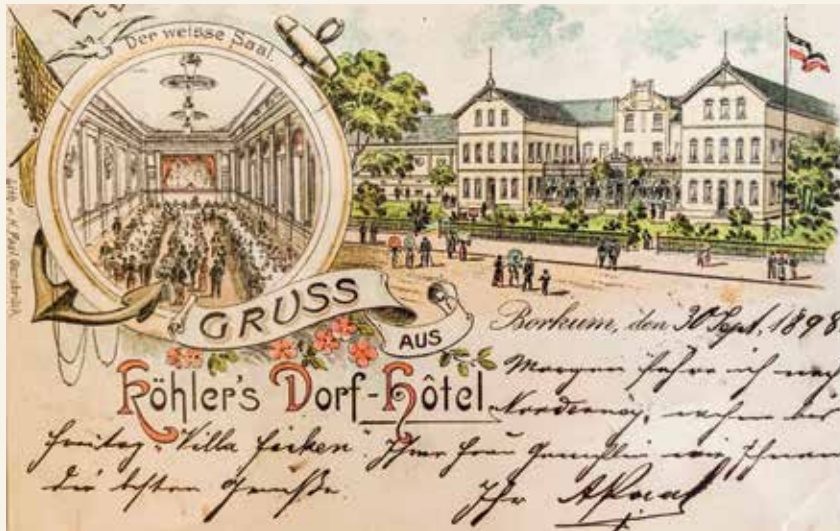 Der weisse Saal.
GRUSS
AUS
Köhler's Dorf-Hôtel
Borkum, den 30 Sept. 1898
Morgen fahre ich nach
Norderney, wohne bis
Freitag „Villa Ficken“. Ihrer Frau Gemahlin wie Ihnen
die besten Grüße.
Ihr